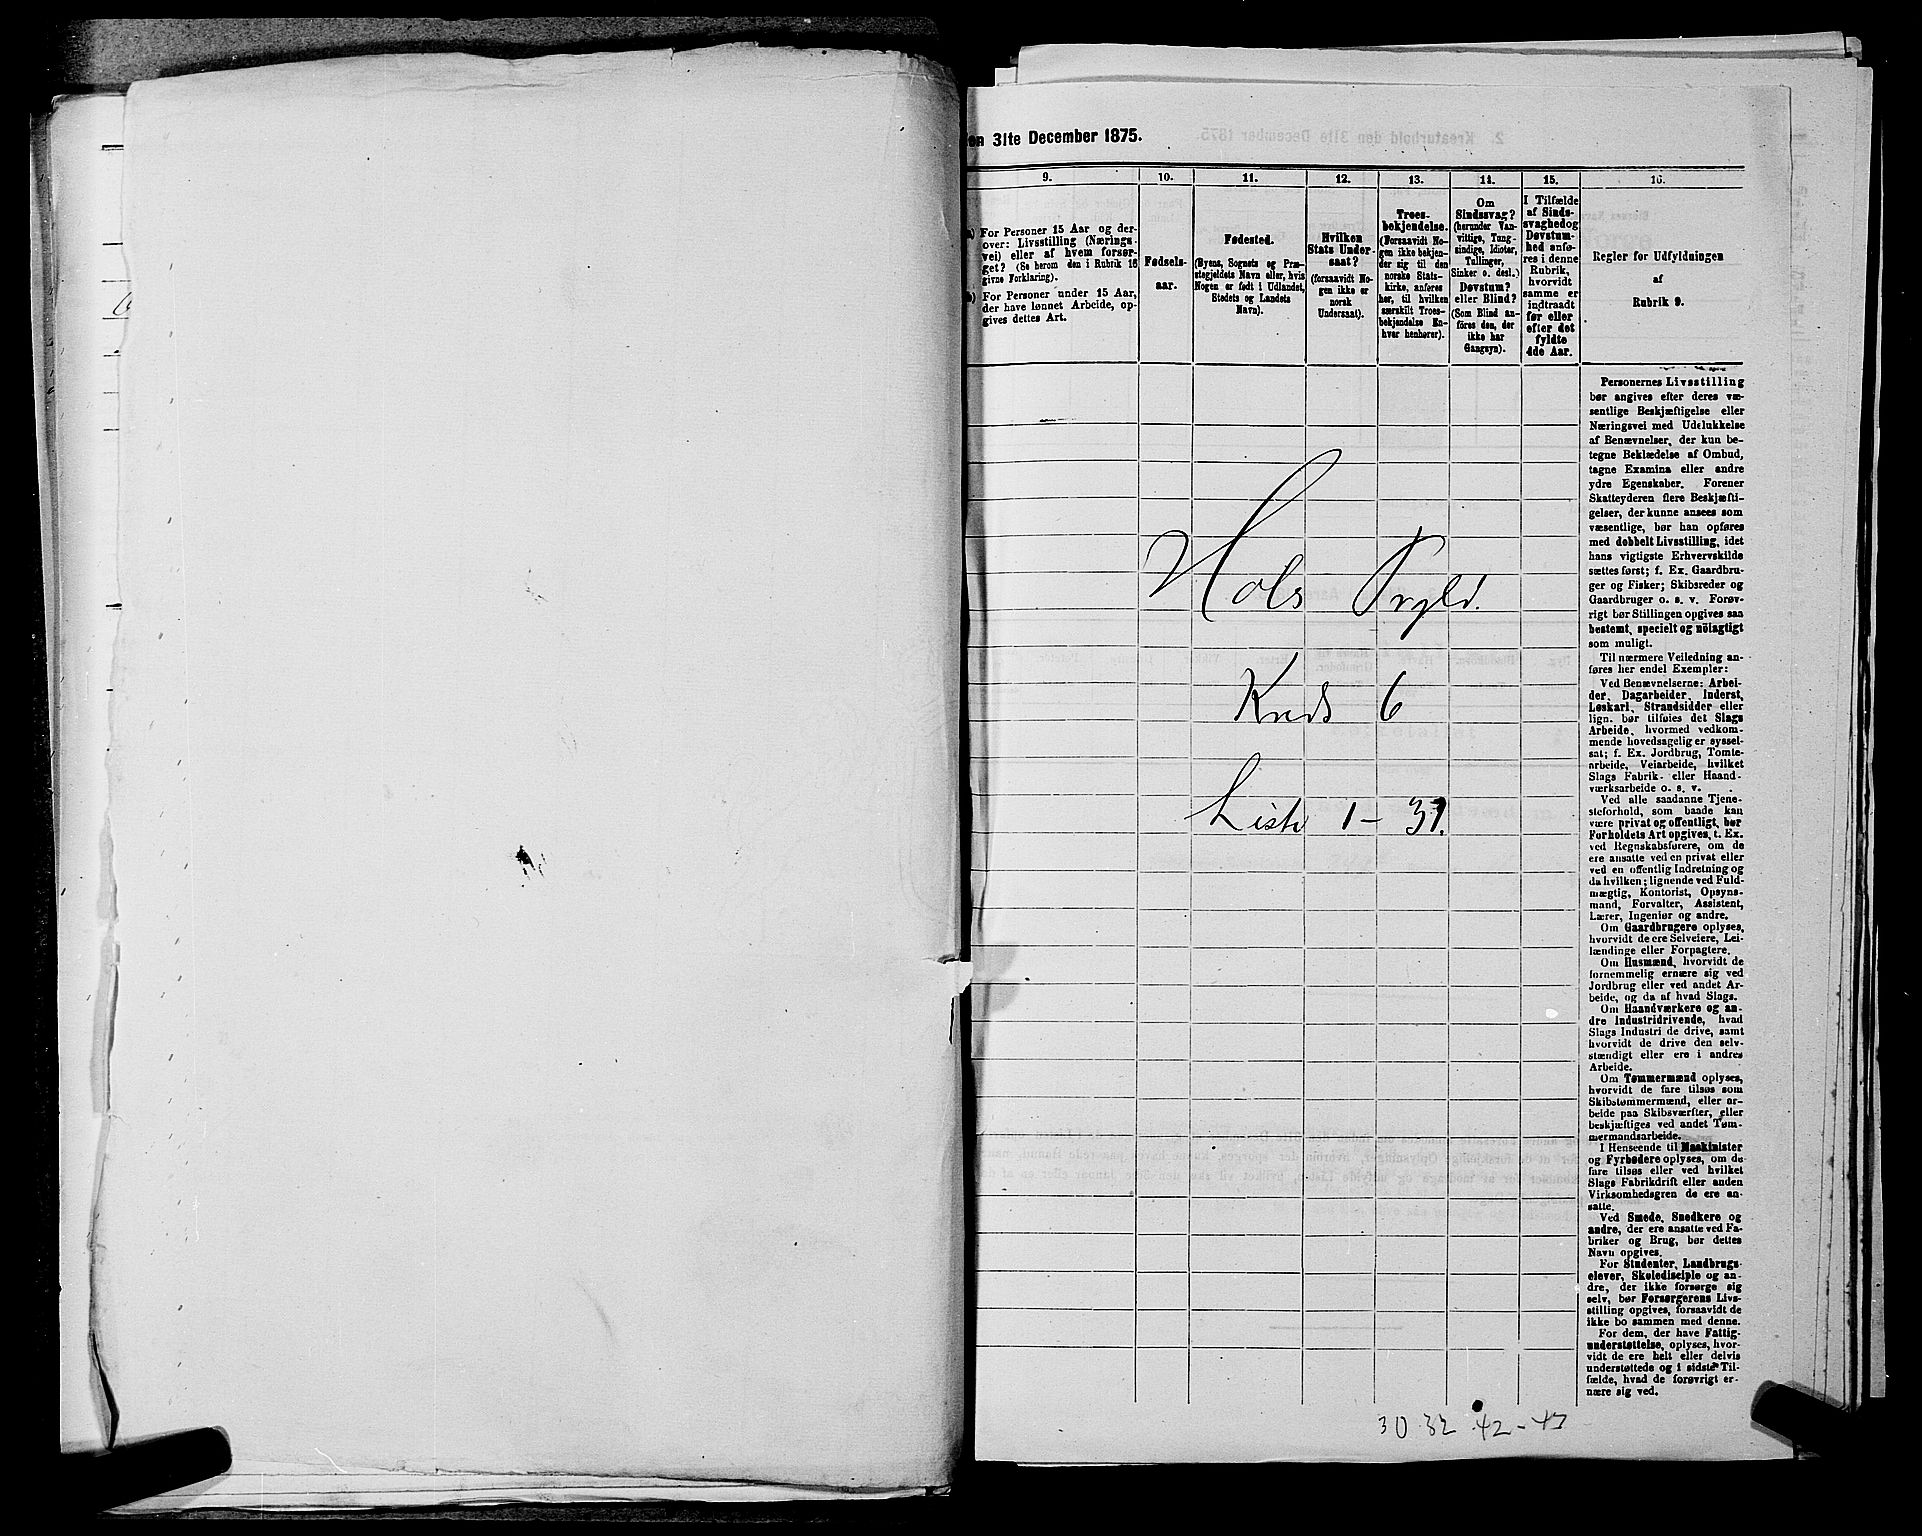 den 31te December 1875.
9.
10.
11.
12.
13.
14.
15.
16.
a) For Personer 15 Aar og der-
over: Livsstilling (Nærings-
vei) eller af hvem forsør-
get? (Se herom den i Rubrik 16
givne Forklaring).
b) For Personer under 15 Aar,
der have lønnet Arbeide, op-
gives dettes Art.
Fødsels-
aar.
Fødested.
(Byens, Sognets og Præ-
stegjeldets Navn eller, hvis
Nogen er født i Udlandet,
Stedets og Landets
Navn).
Hvilken
Stats Under-
saat?
(forsaavidt No-
gen ikke er
norsk
Undersaat).
Troes-
bekjendelse.
(Forsaavidt No-
gen ikke bekjen-
der sig til den
norske Stats-
kirke, anføres
her, til hvilken
særskilt Troes-
bekjendelse En-
hver henhører).
Om
Sindssvag?
(herunder Van-
vittige, Tung-
sindige, Idioter,
Tullinger,
Sinker o. desl.)
Døvstum?
eller Blind?
(Som Blind an-
føres den, der
ikke har
Gangsyn).
I Tilfælde
af Sinds-
svaghed og
Døvstum-
hed anfø-
res i denne
Rubrik,
hvorvidt
samme er
indtraadt
før eller
efter det
fyldte
4de Aar.
Regler for Udfyldningen
af
Rubrik 9.
Personernes Livsstilling
bør angives efter deres væ-
sentlige Beskjæftigelse eller
Næringsvei med Udelukkelse
af Benævnelser, der kun be-
tegne Beklædelse af Ombud,
tagne Examina eller andre
ydre Egenskaber. Forener
Skatteyderen flere Beskjæfti-
gelser, der kunne ansees som
væsentlige, bør han opføres
med dobbelt Livsstilling, idet
hans vigtigste Erhvervskilde
sættes først; f. Ex. Gaardbru-
ger og Fisker; Skibsreder og
Gaardbruger o. s. v. Forøv-
rigt bør Stillingen opgives saa
bestemt, specielt og nöiagtigt
som muligt.
Til nærmere Veiledning an-
føres her endel Exempler:
Ved Benævnelserne: Arbei-
der, Dagarbeider, Inderst,
Løskarl, Strandsidder eller
lign. bør tilføies det Slags
Arbeide, hvormed vedkom-
mende hovedsagelig er syssel-
sat; f. Ex. Jordbrug, Tomte-
arbeide, Veiarbeide, hvilket
Slags Fabrik- eller Haand-
værksarbeide o. s. v.
Ved alle saadanne Tjene-
steforhold, som baade kan
være privat og offentligt, bør
Forholdets Art opgives, t. Ex.
ved Regnskabsførere, om de
ere ansatte ved en privat eller
ved en offentlig Indretning og
da hvilken; lignende ved Fuld-
mægtig, Kontorist, Opsyns-
mand, Forvalter, Assistent,
Lærer, Ingeniør og andre.
Om Gaardbrugere oplyses,
hvorvidt de ere Selveiere, Lei-
lændinge eller Forpagtere.
Om Husmænd, hvorvidt de
fornemmelig ernære sig ved
Jordbrug eller ved andet Ar-
beide, og da af hvad Slags.
Om Haandværkere og an-
dre Industridrivende, hvad
Slags Industri de drive, samt
hvorvidt de drive den selv-
stændigt eller ere i andres
Arbeide.
Om Tømmermænd oplyses,
hvorvidt de fare tilsøs som
Skibstømmermænd, eller ar-
beide paa Skibsværfter, eller
beskjæftiges ved andet Tøm-
mermandsarbeide.
I Henseende til Maskinister
og Fyrbødere oplyses, om de
fare tilsøs eller ved hvilket
Slags Fabrikdrift eller anden
Virksomhedsgren de ere an-
satte.
Ved Smede, Snedkere og
andre, der ere ansatte ved Fa-
briker og Brug, bør dettes
Navn opgives.
For Studenter, Landbrugs-
elever, Skoledisciple og an-
dre, der ikke forsørge sig
selv, bør Forsørgerens Livs-
stilling opgives, forsaavidt de
ikke bo sammen med denne.
For dem, der have Fattig-
understøttelse, oplyses, hvor-
vidt de ere helt eller delvis
understøttede og i sidste Til-
fælde, hvad de forøvrigt er-
nære sig ved.
Hols Prgld.
Kreds 6
Liste 1 - 31.
30 32 42 - 43